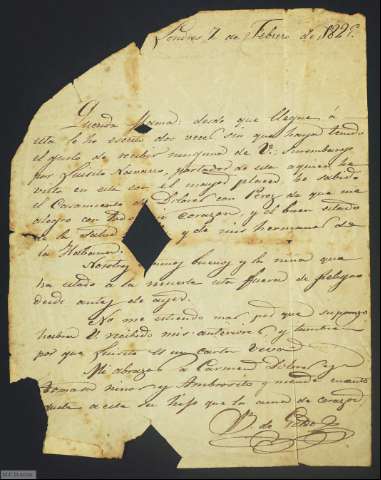 Londres 7 de Febrero de 182
Querida Mama: desde que llegue á
esta le he escrito dos veces sin que haya tenido
el gusto de recibir ninguna de V.; sin embargo
por Luisito Navarro, portador de esta aquien he
visto en esta con el mayor placer he sabido
el Casamiento de Dolores con Perez de que me
alegro con todo mi corazon, y el buen estado
de la salud y de mis hermanas de
la Habana
Nosotros buenos y la niña que
ha estado á la muerte esta fuera de peligro
desde antes de ayer.
No me estiendo mas pr que supongo
habrá V. recibido mis anteriores y tambien
por que Luisito es un carta viva
Mil abrazos á Carmen Dolores y
Tomasa niños y Ambrosito y mande cuanto
guste a este su hijo que la ama de corazon
de